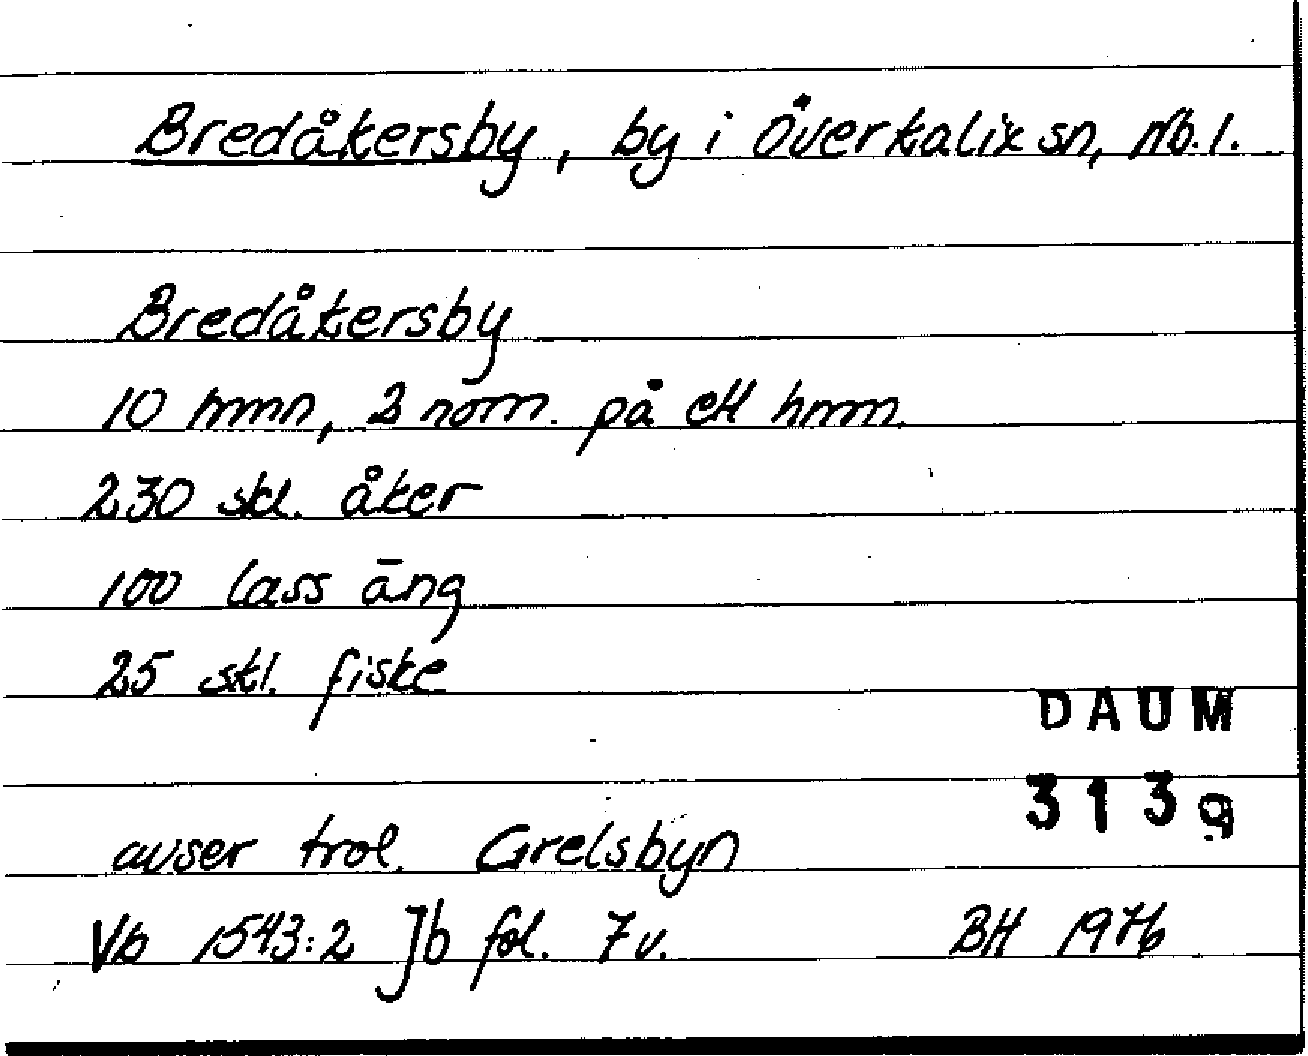 Bredåkersby, by i Överkalix sn, Nb. l.
Bredåkersby
10 hmn, 2 nom. på ett hmm.
230 skl. åker
100 lass äng
25 skl. fiske
DAUM
3139
avser trol. Grelsbyn
Vb 1543:2 Jb fol. 7 v. BH 1976